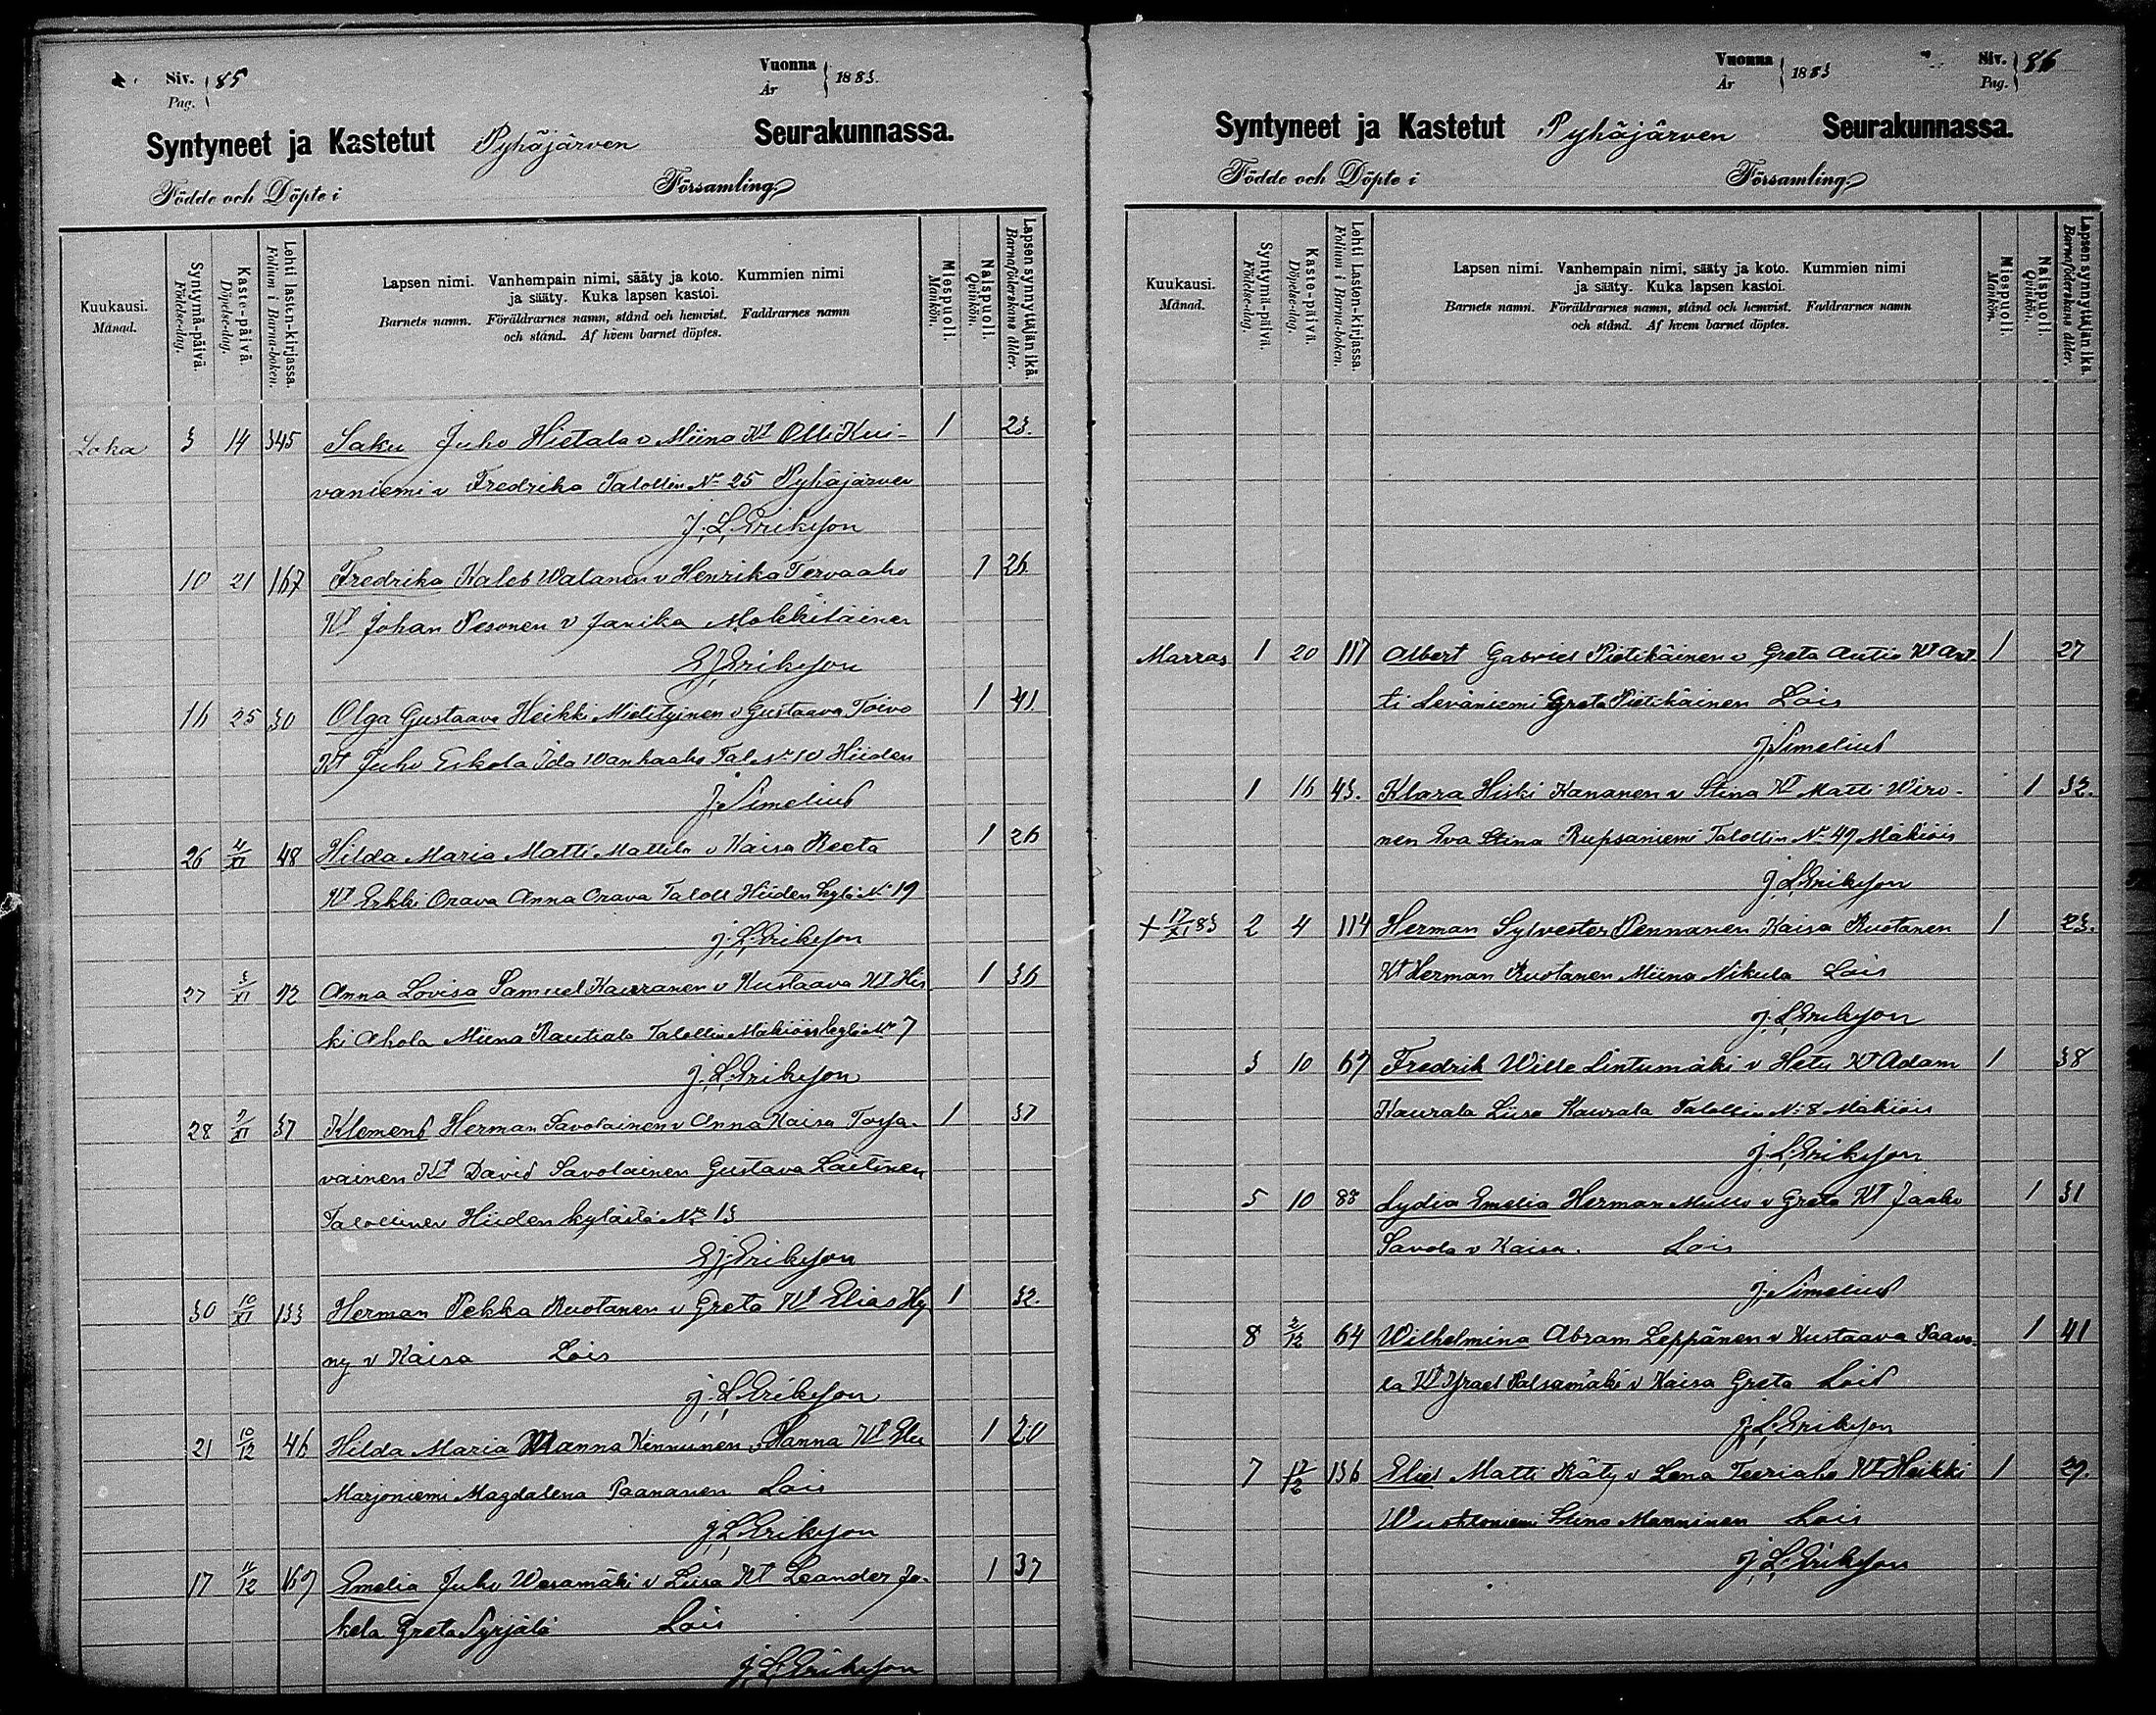 Siv. 85
Pag.
Vuonna 1883.
År
Syntyneet ja Kastetut Pyhäjärven Seurakunnassa.
Födde och Döpte i Församling.
Kuukausi.
Månad.
Syntymä-päivä.
Födelse-dag.
Kaste-päivä.
Döpelse-dag.
Lehti lasten-kirjassa.
Folium i Barna-boken.
Lapsen nimi. Vanhempain nimi, sääty ja koto. Kummien nimi
ja sääty. Kuka lapsen kastoi.
Barnets namn. Föräldrarnes namn, stånd och hemvist. Faddrarnes namn
och stånd. Af hvem barnet döptes.
Miespuoli.
Mankön.
Naispuoli.
Qvinkön.
Lapsen synnyttäjän ikä.
Barnaföderskans ålder.
Loka 3 14 345 Saku Juho Hietala v Miina Kt Olli Kui- 1 23.
vaniemi v Fredrika Talollin No 25 Pyhäjärven
J. L. Erikson
10 21 167 Fredrika Kaleb Watanen v Henrika Tervaaho 1 26
Kt Johan Pesonen v Janika Mökkiläinen
Erikson
16 25 30 Olga Gustaava Heikki Mielityinen v Gustaava Toivo 1 41
Kt Juho Eskola Ida Wanhaaho Tal No 10 Hiiden
J. Simelius
26 4/XI 48 Hilda Maria Matti Mattila v Kaisa Reeta 1 26
Kt Erkki Orava Anna Orava Taloll Hiiden kylä No 19
J. L. Erikson
27 3/XI 72 Anna Lovisa Samuel Kauranen v Kustaava Kt His 1 36
ki Ahola Miina Rautiala Talollin Mäkiöis kylä No 7
J. L. Erikson
28 7/XI 37 Klemens Herman Savolainen v Anna Kaisa 1 37
vainen Kt David Savolainen Gustava Laitinen
Talollinen Hiiden kylästä No 13
Erikson
30 10/XI 133 Herman Pekka Ruotanen v Greta Kt Elias Hy 1 32.
ny v Kaisa Lois
J. L. Erikson
21 10/12 46 Hilda Maria Manna Kinnunen v Hanna Kt 1 20
Marjoniemi Magdalena Paananen Lois
J. L. Erikson
17 11/12 Emelia Juho Wesamäki v Liisa Kt Leander Jo- 1 37
kela Greta Syrjälä Lois
J. L. Erikson
Vuonna 1883
År
Siv. 86
Pag.
Syntyneet ja Kastetut Pyhäjärven Seurakunnassa.
Födde och Döpte i Församling.
Kuukausi.
Månad.
Syntymä-päivä.
Födelse-dag.
Kaste-päivä.
Döpelse-dag.
Lehti Lasten-kirjassa.
Folium i Barna-boken.
Lapsen nimi. Vanhempain nimi, sääty ja koto. Kummien nimi
ja sääty. Kuka lapsen kastoi.
Barnets namn. Föräldrarnes namn, stånd och hemvist. Faddrarnes namn
och stånd. Af hvem barnet döptes.
Miespuoli.
Mankön.
Naispuoli.
Qvinkön.
Lapsen synnyttäjän ikä.
Barnaföderskans ålder.
Marras 1 20 117 Albert Gabriel Pietikäinen v Greta Autio Kt Ant 1 27
ti Leväniemi Greta Pietikäinen Lois
J. Simelius
1 16 43. Klara Hiski Kananen v Stina Kt Matti Wiro- 1 32.
nen Eva Stina Rupsaniemi Talollin No 47 Mäkiöis
J. L. Erikson
+ 17/XI 83 2 4 114 Herman Sylvester Pennanen Kaisa Ruotanen 1 23.
Kt Herman Ruotanen Miina Nikula Lois
J. L. Erikson
3 10 67 Fredrik Wille Lintumäki v Hetu Kt Adam 1 38
Kaurala Liisa Kaurala Talollin No 8 Mäkiöis
J. L. Erikson
5 10 88 Lydia Emelia Herman Mullo v Greta Kt Jaako 1 31
Savola v Kaisa. Lois
J. Simelius
8 2/12 64 Wilhelmina Abram Leppänen v Kustaava Paavo- 1 41
la Kt Israel Palsamäki v Kaisa Greta Lois
J. L. Erikson
7 17/12 136 Elias Matti Räty v Lena Teeriaho Kt Heikki 1 29.
Wuohtoniemi Stina Manninen Lois
J. L. Erikson